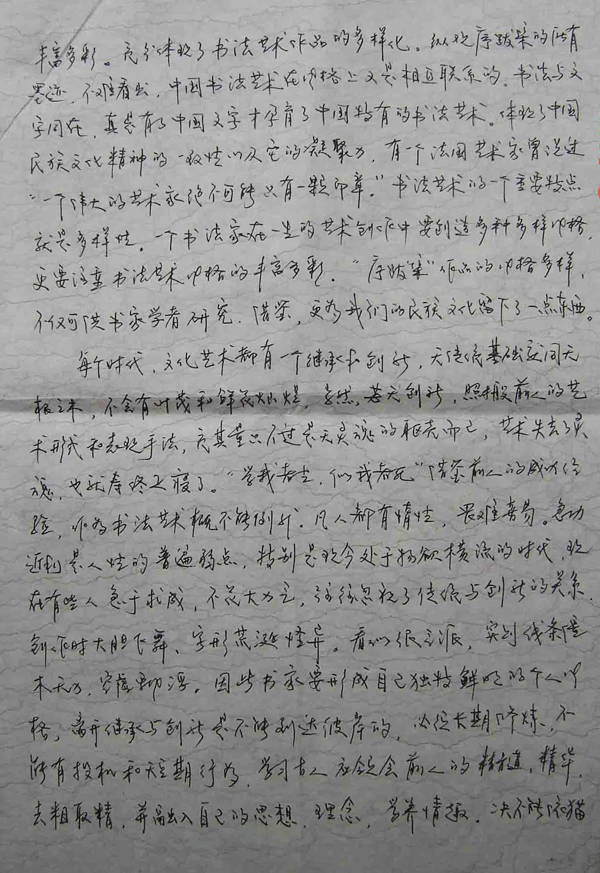 丰富多彩。充分体现了书法艺术作品的多样化。纵观序跋集的所有
墨迹，不难看出，中国书法艺术在风格上又是相互联系的。书法与文
字同在，真是有了中国文字才孕育了中国特有的书法艺术。体现了中国
民族文化精神的一致性以及它的凝聚力，有一个法国艺术家曾说过
“一个伟大的艺术家绝不可能只有一颗印章。”书法艺术的一个重要特点
就是多样性。一个书法家在一生的艺术创作中要创造多种多样风格，
更要注重书法艺术风格的丰富多彩，“序跋集”作品的风格多样，
不仅可供书家学者研究、借鉴，更为我们的民族文化留下了一点东西。
每个时代，文化艺术都有一个继承和创新，无传统基础就同无
根之木，不会有叶茂和鲜花灿烂，当然，若无创新，照搬前人的艺
术形式和表现手法，充其量只不过是无灵魂的躯壳而已，艺术失去了灵
魂，也就寿终正寝了。“学我者生，似我者死”借鉴前人的成功经
验，作为书法艺术概不能例外。凡人都有惰性，畏难喜易。急功
近利是人性的普遍弱点，特别是现今处于物欲横流的时代，现
在有些人急于求成，不花大力气，往往忽视了传统与创新的关系，
创作时大胆飞舞、字形荒诞怪异。看似很立派，实则线条僵
木无力，空虚漂浮。因此书家要形成自己独特鲜明的个人风
格，离开继承与创新是不能到达彼岸的，必经长期修炼，不
能有投机和短期行为，学习古人应领会前人的精髓，精华，
去粗取精，并融入自己的思想、理念，学养情趣。决不能依猫